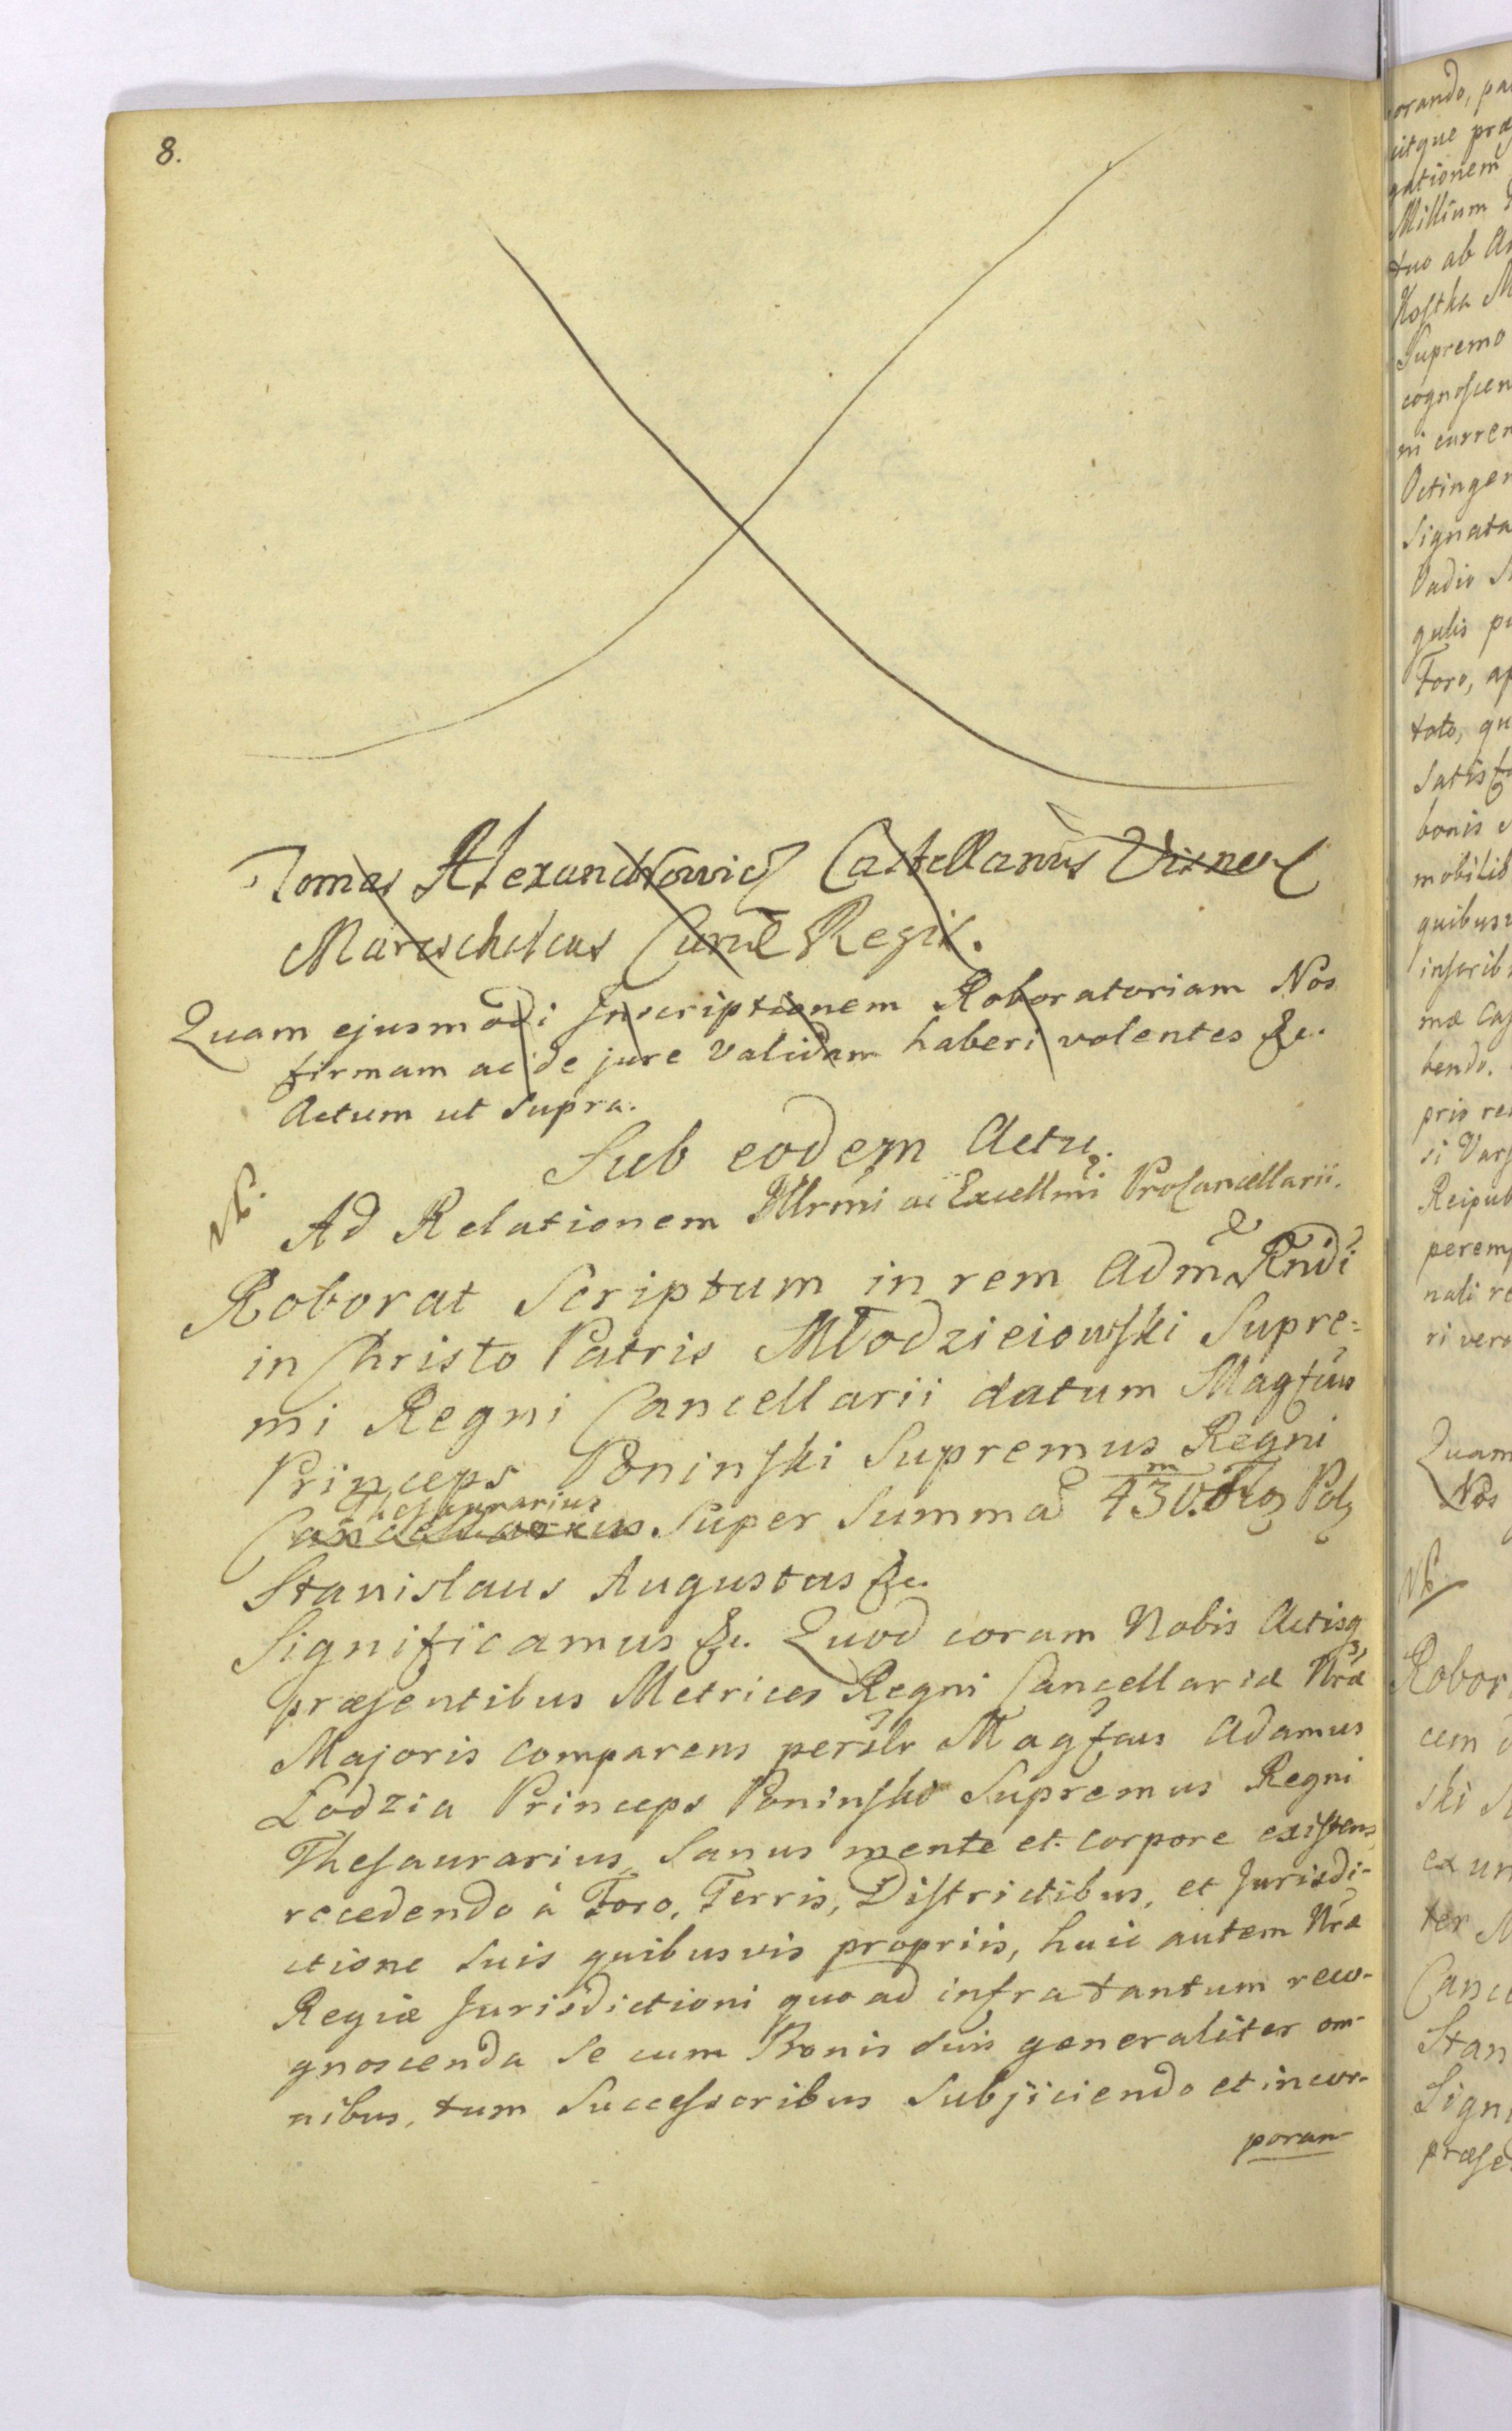 8.
Tomas Alexandrowicz Castellanus Visnen
Mareschalcus Curiæ Regiæ.
Quam ejusmodi Inscriptionem Roboratoriam Nos
firmam ac de jure validam haberi volentes &c.
Actum ut supra.
Sub eodem Actu.
NB.
Ad Relationem Illrmi ac Excellmi ProCancellarii.
Roborat Scriptum in rem Adm Rndi
in Christo Patris Młodzieiowski Supre=
mi Regni Cancellarii datum Magfus
Princeps Poninski Supremus Regni
Thesaurarius
Cancellarius. Super Summa 430.m Flor Pol
Stanislaus Augustus &c.
Significamus &c. Quod coram Nobis Actisq
præsentibus Metrices Regni Cancellariæ Nræ
Majoris comparens persłr Magfcus Adamus
Lodzia Princeps Poninski Supremus Regni
Thesaurarius, sanus mente et corpore existens,
recedendo à Foro, Terris, Districtibus, et Jurisdi-
ctione suis quibusvis propriis, huic autem Nræ
Regiæ Jurisdictioni quo ad infra tantum reco-
gnoscenda se cum Bonis suis generaliter om-
nibus, tum Successoribus subjiciendo et incor-
poran
orando, pa
itque præ
gationem
Millium
tuo ab A
Kostka M
Supremo
cognoscen
ni curren
Octingen
Signata
Vadio S
gulis p
Foro, ap
tato, qu
satisf
bonis
mobilib
quibusv
inscrib
mæ Cas
bendo.
pris re
si Vars
Reipub
peremp
nali re
ri vero
Quam
Nos
NB
Robor
cem
ski S
ex un
ter M
Cance
Stan
Signi
præse